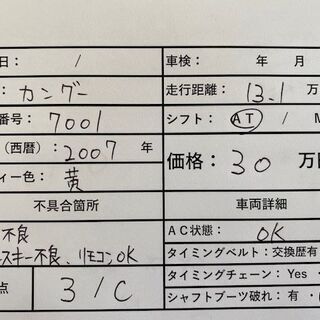 日: / 車検: 年 月
: カングー 走行距離: 13.1 万
番号: 7001 シフト: AT / M
(西暦): 2007 年 価格: 30 万円
ィー色: 黄
不具合箇所 車両詳細
不良 AC状態: OK
スキー不良、リモコンOK タイミングベルト: 交換歴有
タイミングチェーン: Yes ・
点 3/C シャフトブーツ破れ: 有 ・